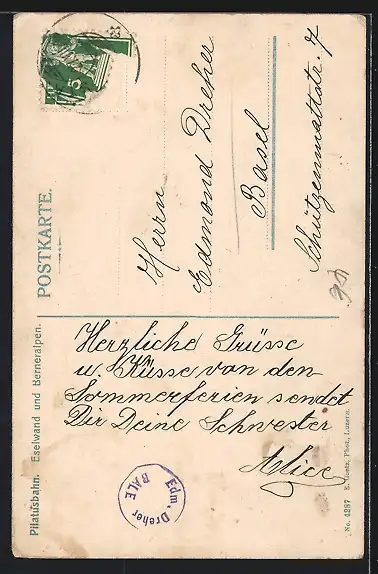 Pilatusbahn. Eselwand und Berneralpen.
POSTKARTE.
5
Herrn
Edmond Dreher
Basel
Schützenmattstr. 7
Herzliche Grüsse
u. Küsse von den
Sommerferien sendet
Dir Deine Schwester
Alice
Edm. Dreher
BALE
No. 4287 E. Goetz, Phot., Luzern.